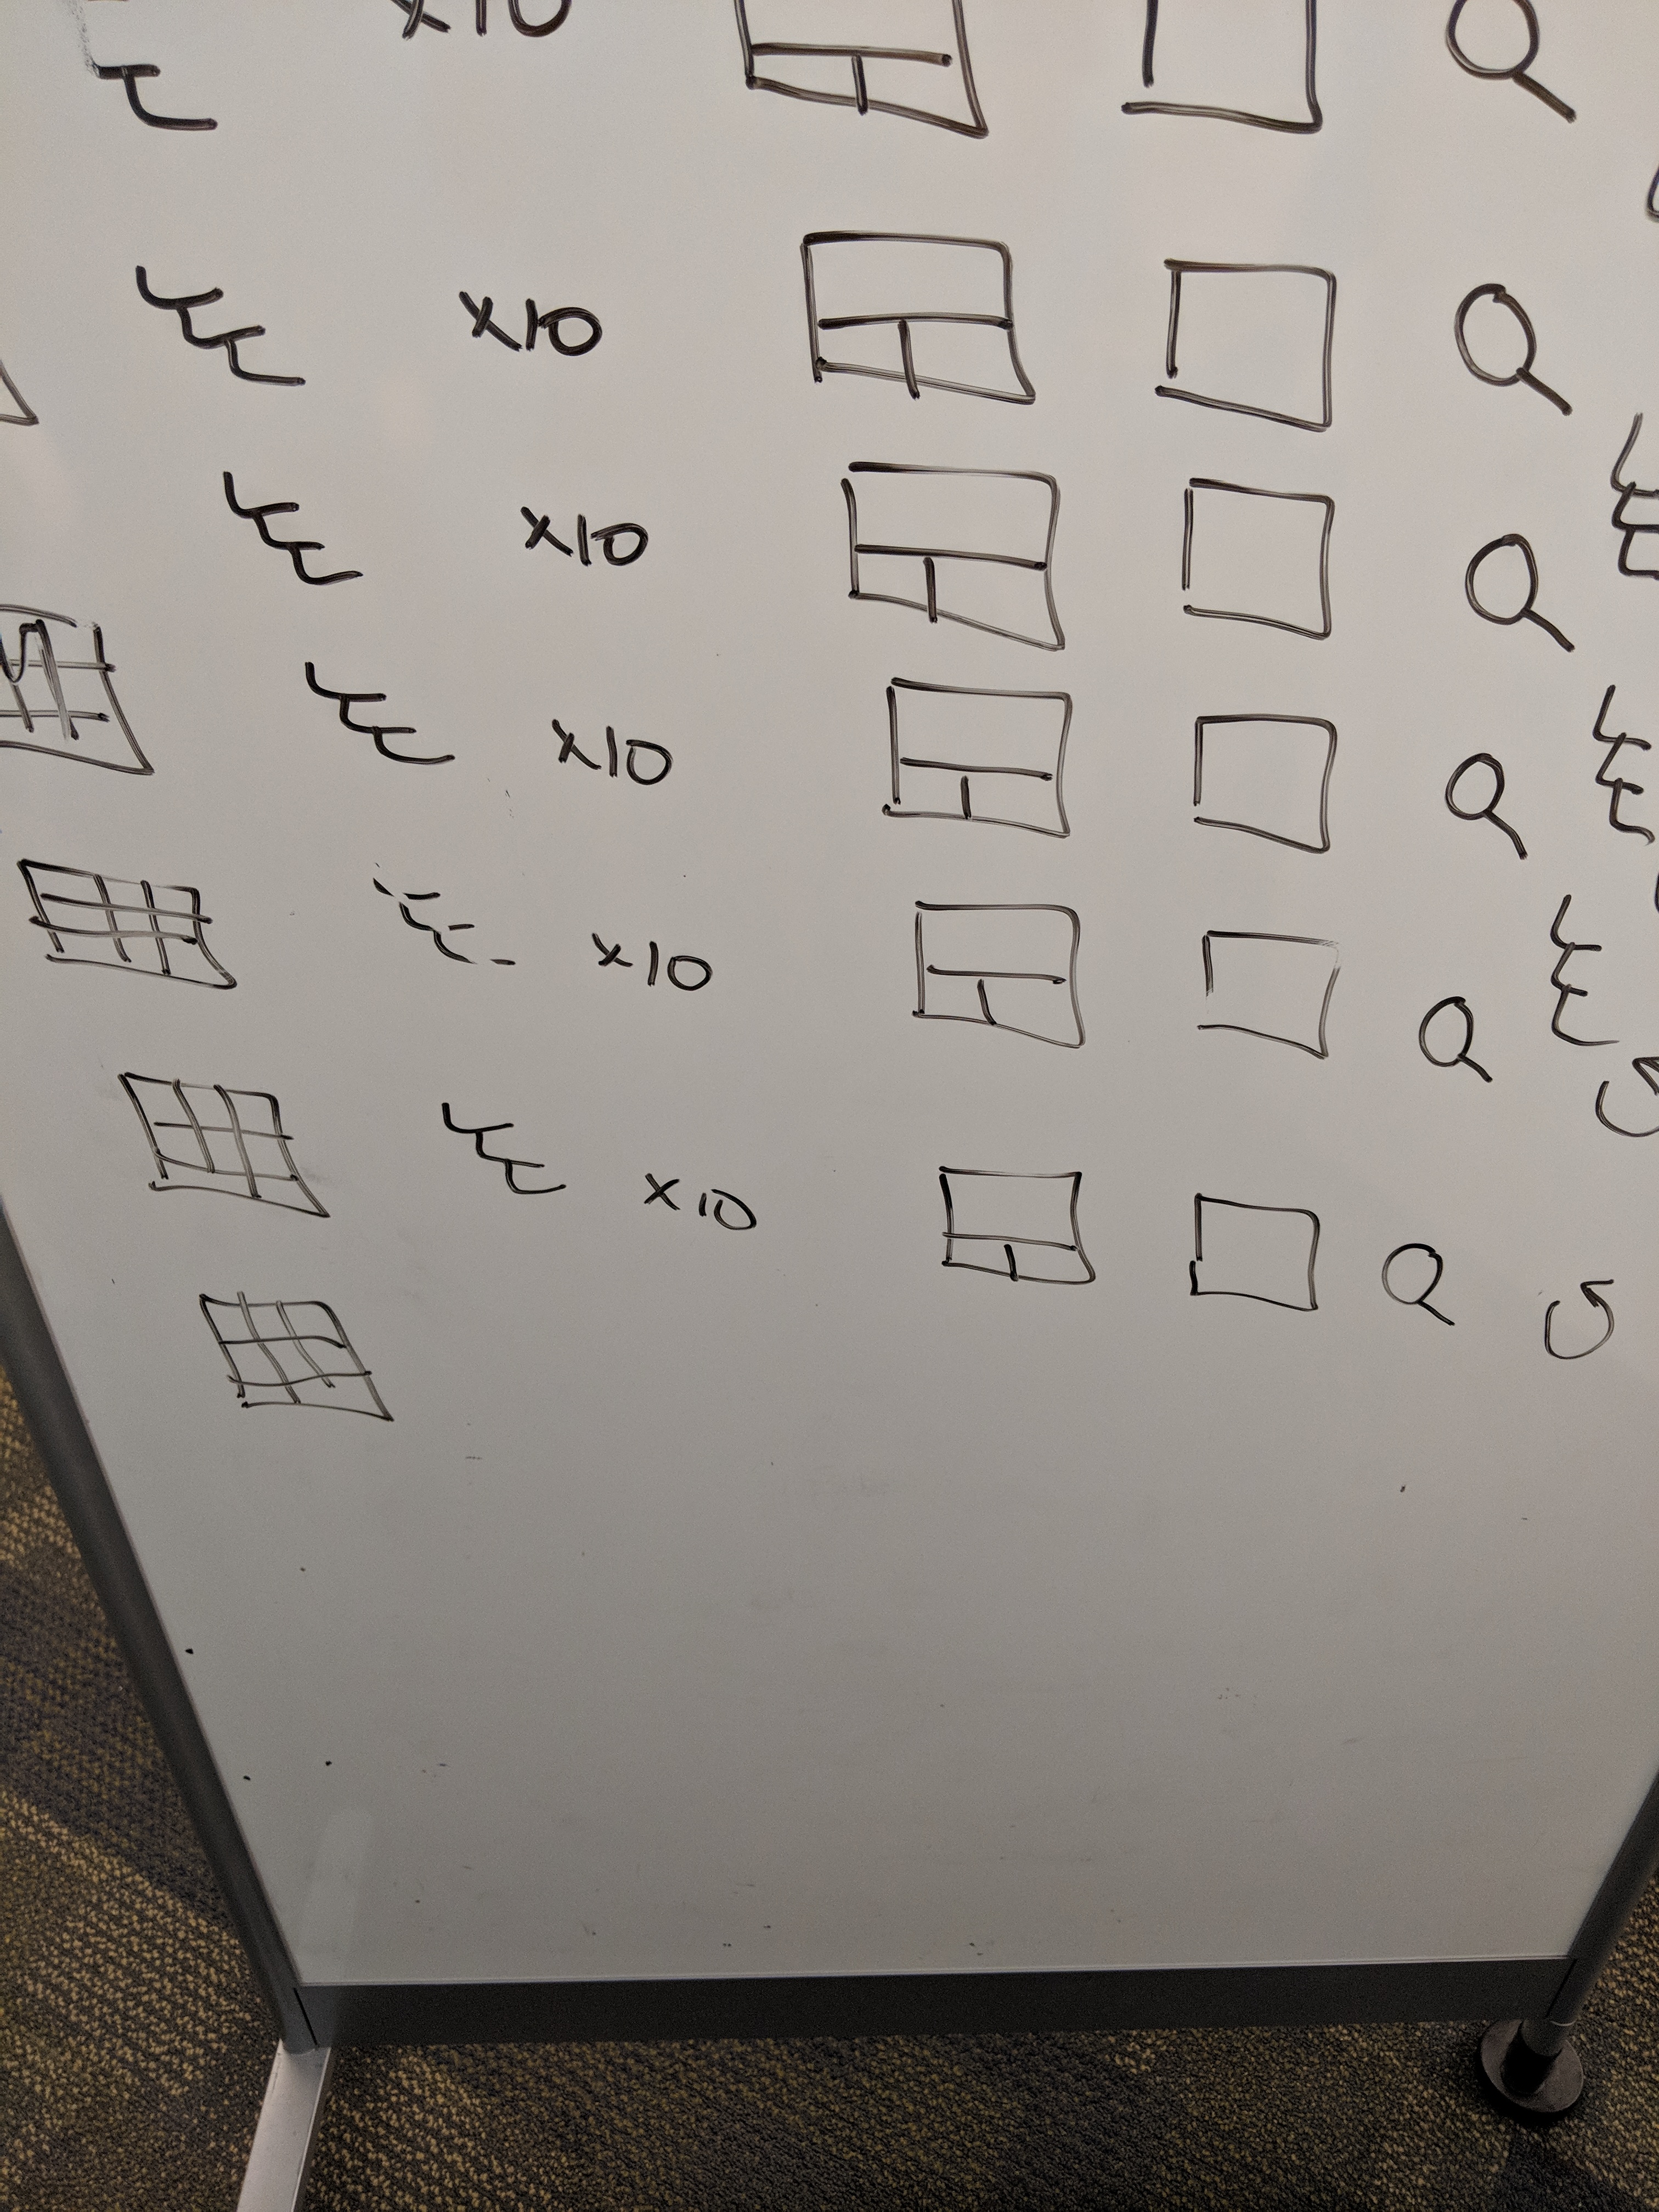 x10
x10
x10
x10
x10
x10